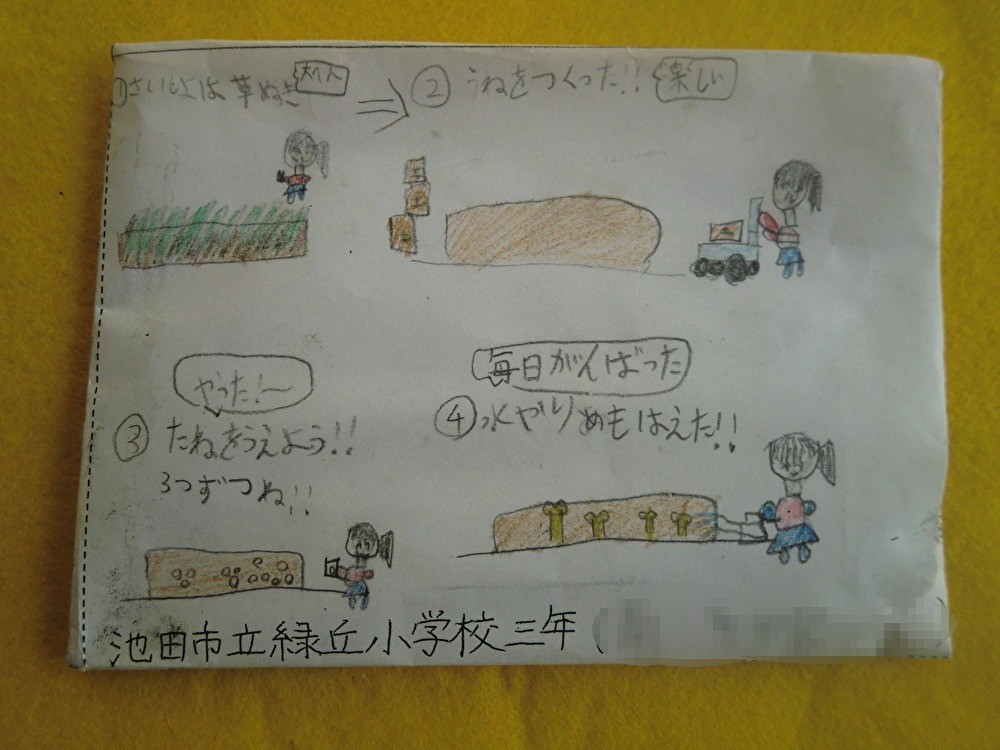 ①さいしょは草ぬき
大人
②うねをつくった!!
楽しい
やった!〜
③たねをうえよう!!
3つずつね!!
毎日がんばった
④水やりめもはえた!!
池田市立緑丘小学校三年